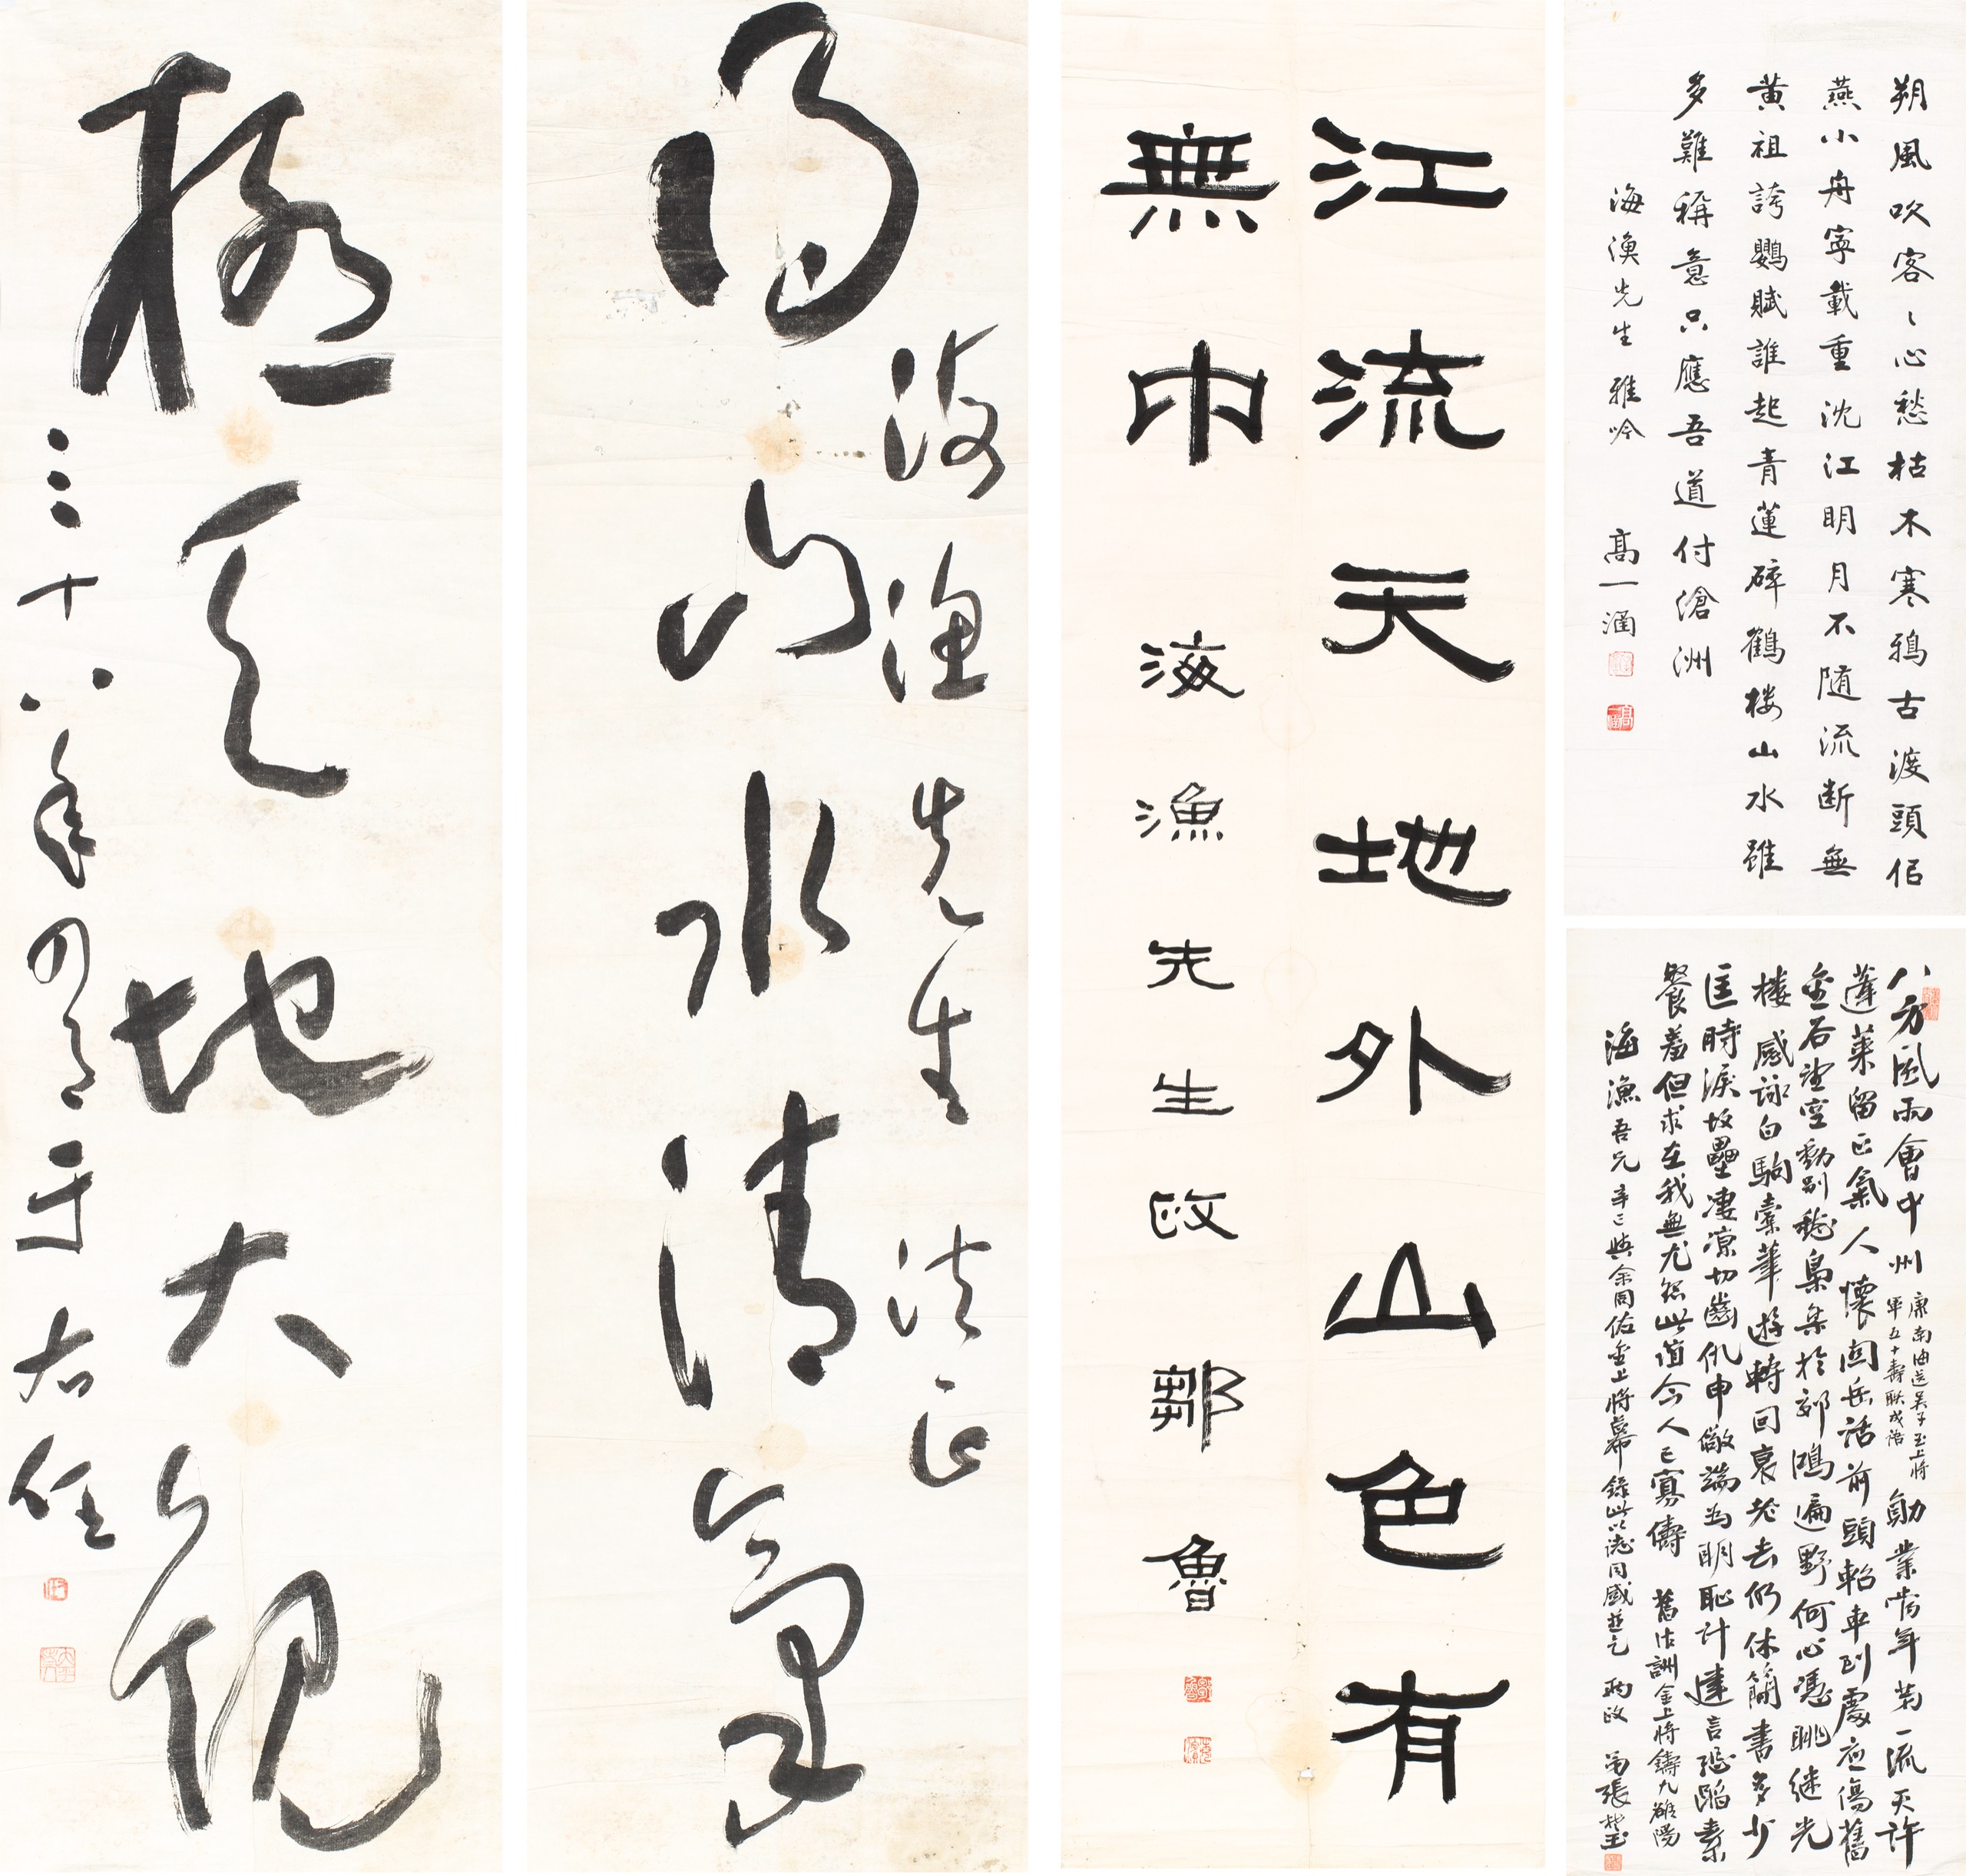 朔風吹客々心愁枯木寒鴉古渡頭侶
燕小舟寧載重沈江明月不随流断無
黃祖誇鸚賦誰起青蓮碎鶴楼山水雖
多難稱意只應吾道付滄洲
海漁先生雅吟 高一涵
八方風雨會中州 康南海送吳子玉上將軍五十壽聯成語 勛業當年第一流天許
蓬萊留正氣人懷関岳話前頭軺車到處应傷舊
金石望空動別愁梟集於郊鴻遍野何心憑眺继光
楼感詠白駒華遊轉回哀老去仍休簡書多少
匡時淚故壘凄涼切齒仇申儆端為明恥計建言恐蹈素
餐羞但求在我無尤怨此誼今人已寡儔 舊作詶金上將鑄九雒陽
海漁吾兄辛巳與余同佐金上將幕錄此以志同感並乞 兩政 弟張玉
江流天地外山色有
無中 海漁先生政 鄒魯
海漁先生法正
得山水清氣
極天地大觀
三十八年四月 于右任